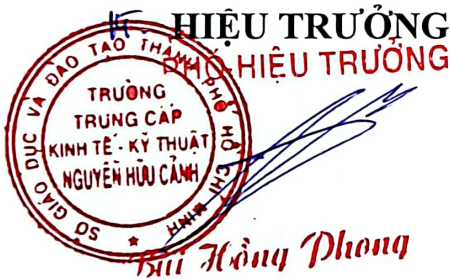 KT. HIỆU TRƯỞNG
PHÓ HIỆU TRƯỞNG
SỞ GIÁO DỤC VÀ ĐÀO TẠO THÀNH PHỐ HỒ CHÍ MINH
TRƯỜNG
TRUNG CẤP
KINH TẾ - KỸ THUẬT
NGUYỄN HỮU CẢNH
Bùi Hồng Phong